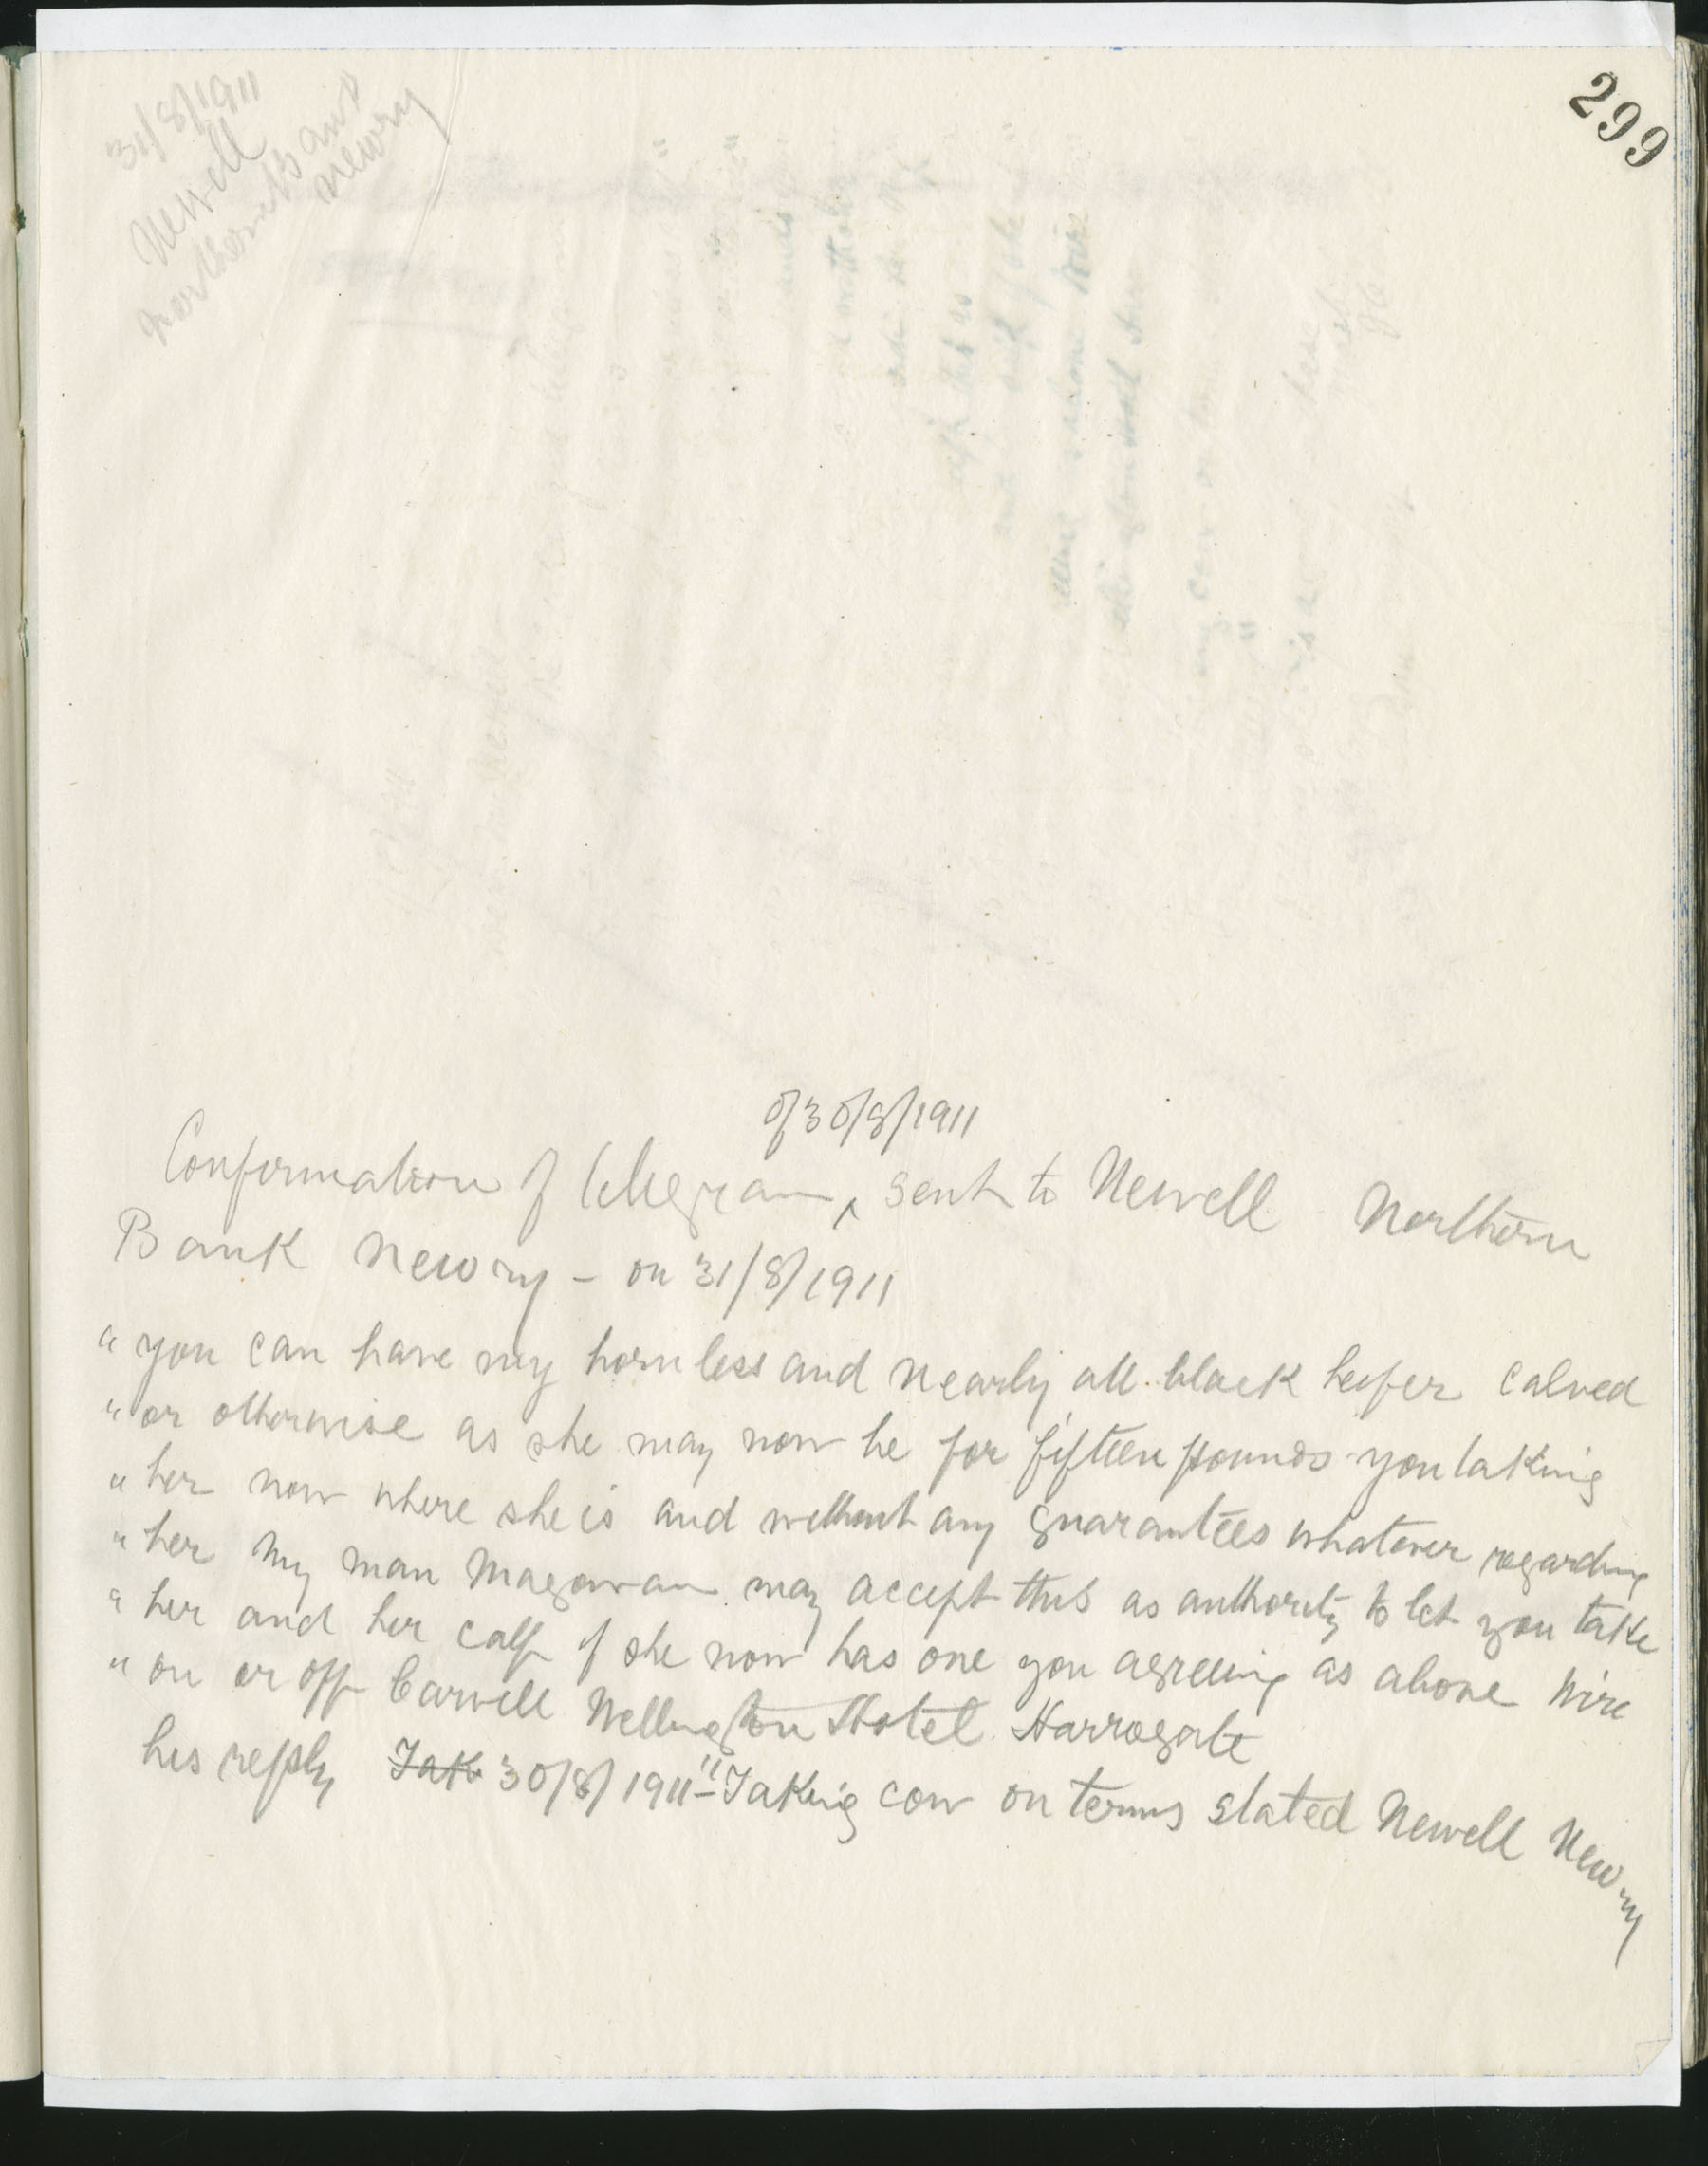 299
31/8/1911
Newell
Northern Bank
Newry
of 30/8/1911
Confirmation of telegram ^ sent to Newell Northern
Bank Newry - on 31/8/1911
" you can have my hornless and nearly all black heifer calved
" or otherwise as she may now be for fifteen pounds you taking
" her now where she is and without any guarantees whatever regarding
" her my man Magowan may accept this as authority to let you take
" her and her calf if she now has one you agreeing as above wire
" on or off Carvill Wellington Hotel Harrogate
his reply Tak 30/8/1911 "Taking cow on terms stated Newell Newry